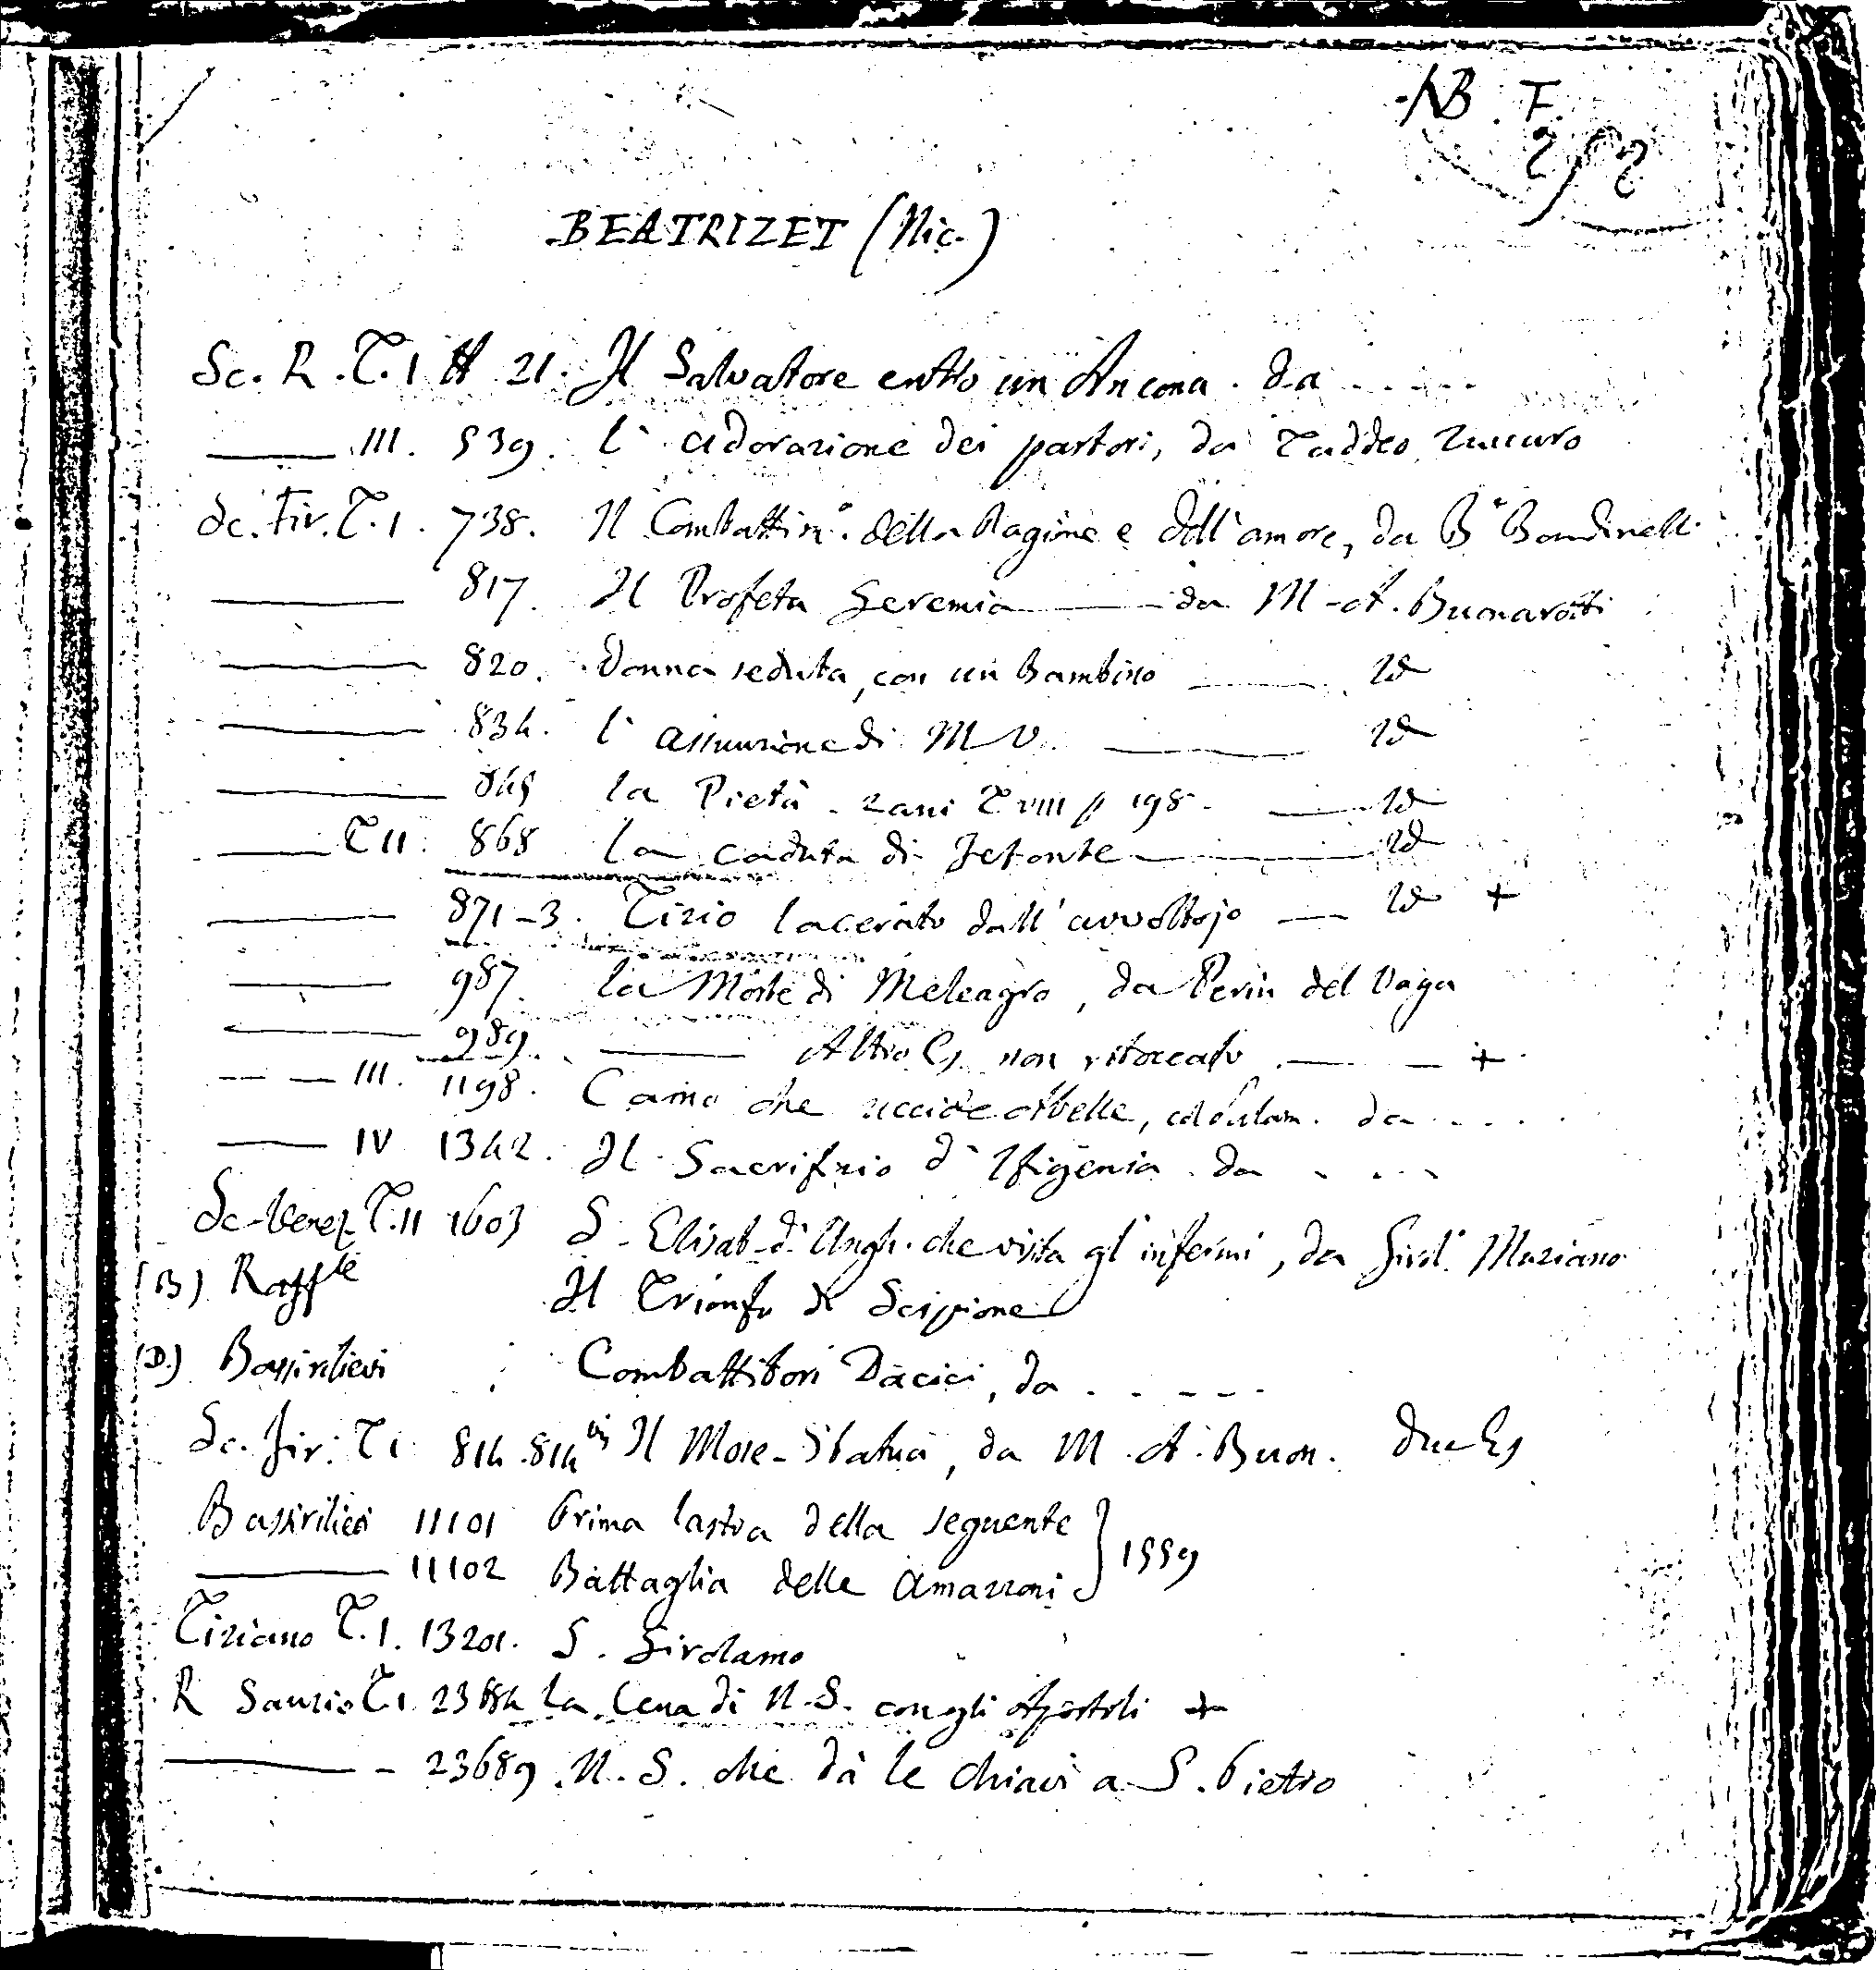 NB. F.
BEATRIZET (Nic.)
Sc. R. T. I # 21. Il Salvatore entro un Ancona. da .....
——— III. 539. l'adorazione dei pastori, da Taddeo Zuccaro
Sc. Fir. T. I. 738. Il Combattim.º della Ragione e dell'amore, da Bº Bandinelli
——— 817. Il Profeta Geremia ——— da M-A. Buonaroti
——— 820. Donna seduta, con un bambino ——— Id
——— 834. l'assunzione di M V. ——— Id
——— 845 la Pietà - Zani T VIII p 198. ——— Id
——— T II. 868 La caduta di Fetonte ——— Id
——— 871-3. Tizio lacerato dall'avvoltojo —— Id +
——— 987. la Morte di Meleagro, da Perin del Vaga
——— 989. ——— Altro Es. non ritoccato —— — +
— — III. 1198. Caino che uccide Abelle, da ....
—— IV 1342. Il Sacrifizio d'Ifigenia. da ....
Sc-Venez. T. II 1603 S. Elisab. d'Ungh. che visita gl'infermi, da Girol. Muziano
(B) Raffle Il Trionfo di Scipione
(D.) Bassirilievi Combattitori Dacici, da .....
Sc. Fir. T I. 814. 814 bis Il Mosè-Statua, da M. A. Buon. due Es
Bassirilievi 11101 Prima lastra della seguente } 1559
——— 11102 Battaglia delle Amazzoni
Tiziano T. I. 13201. S. Girolamo
R Sanzio T. I. La Cena di N. S. con gli Apostoli +
——— - 23689. N. S. che dà le chiavi a S. Pietro